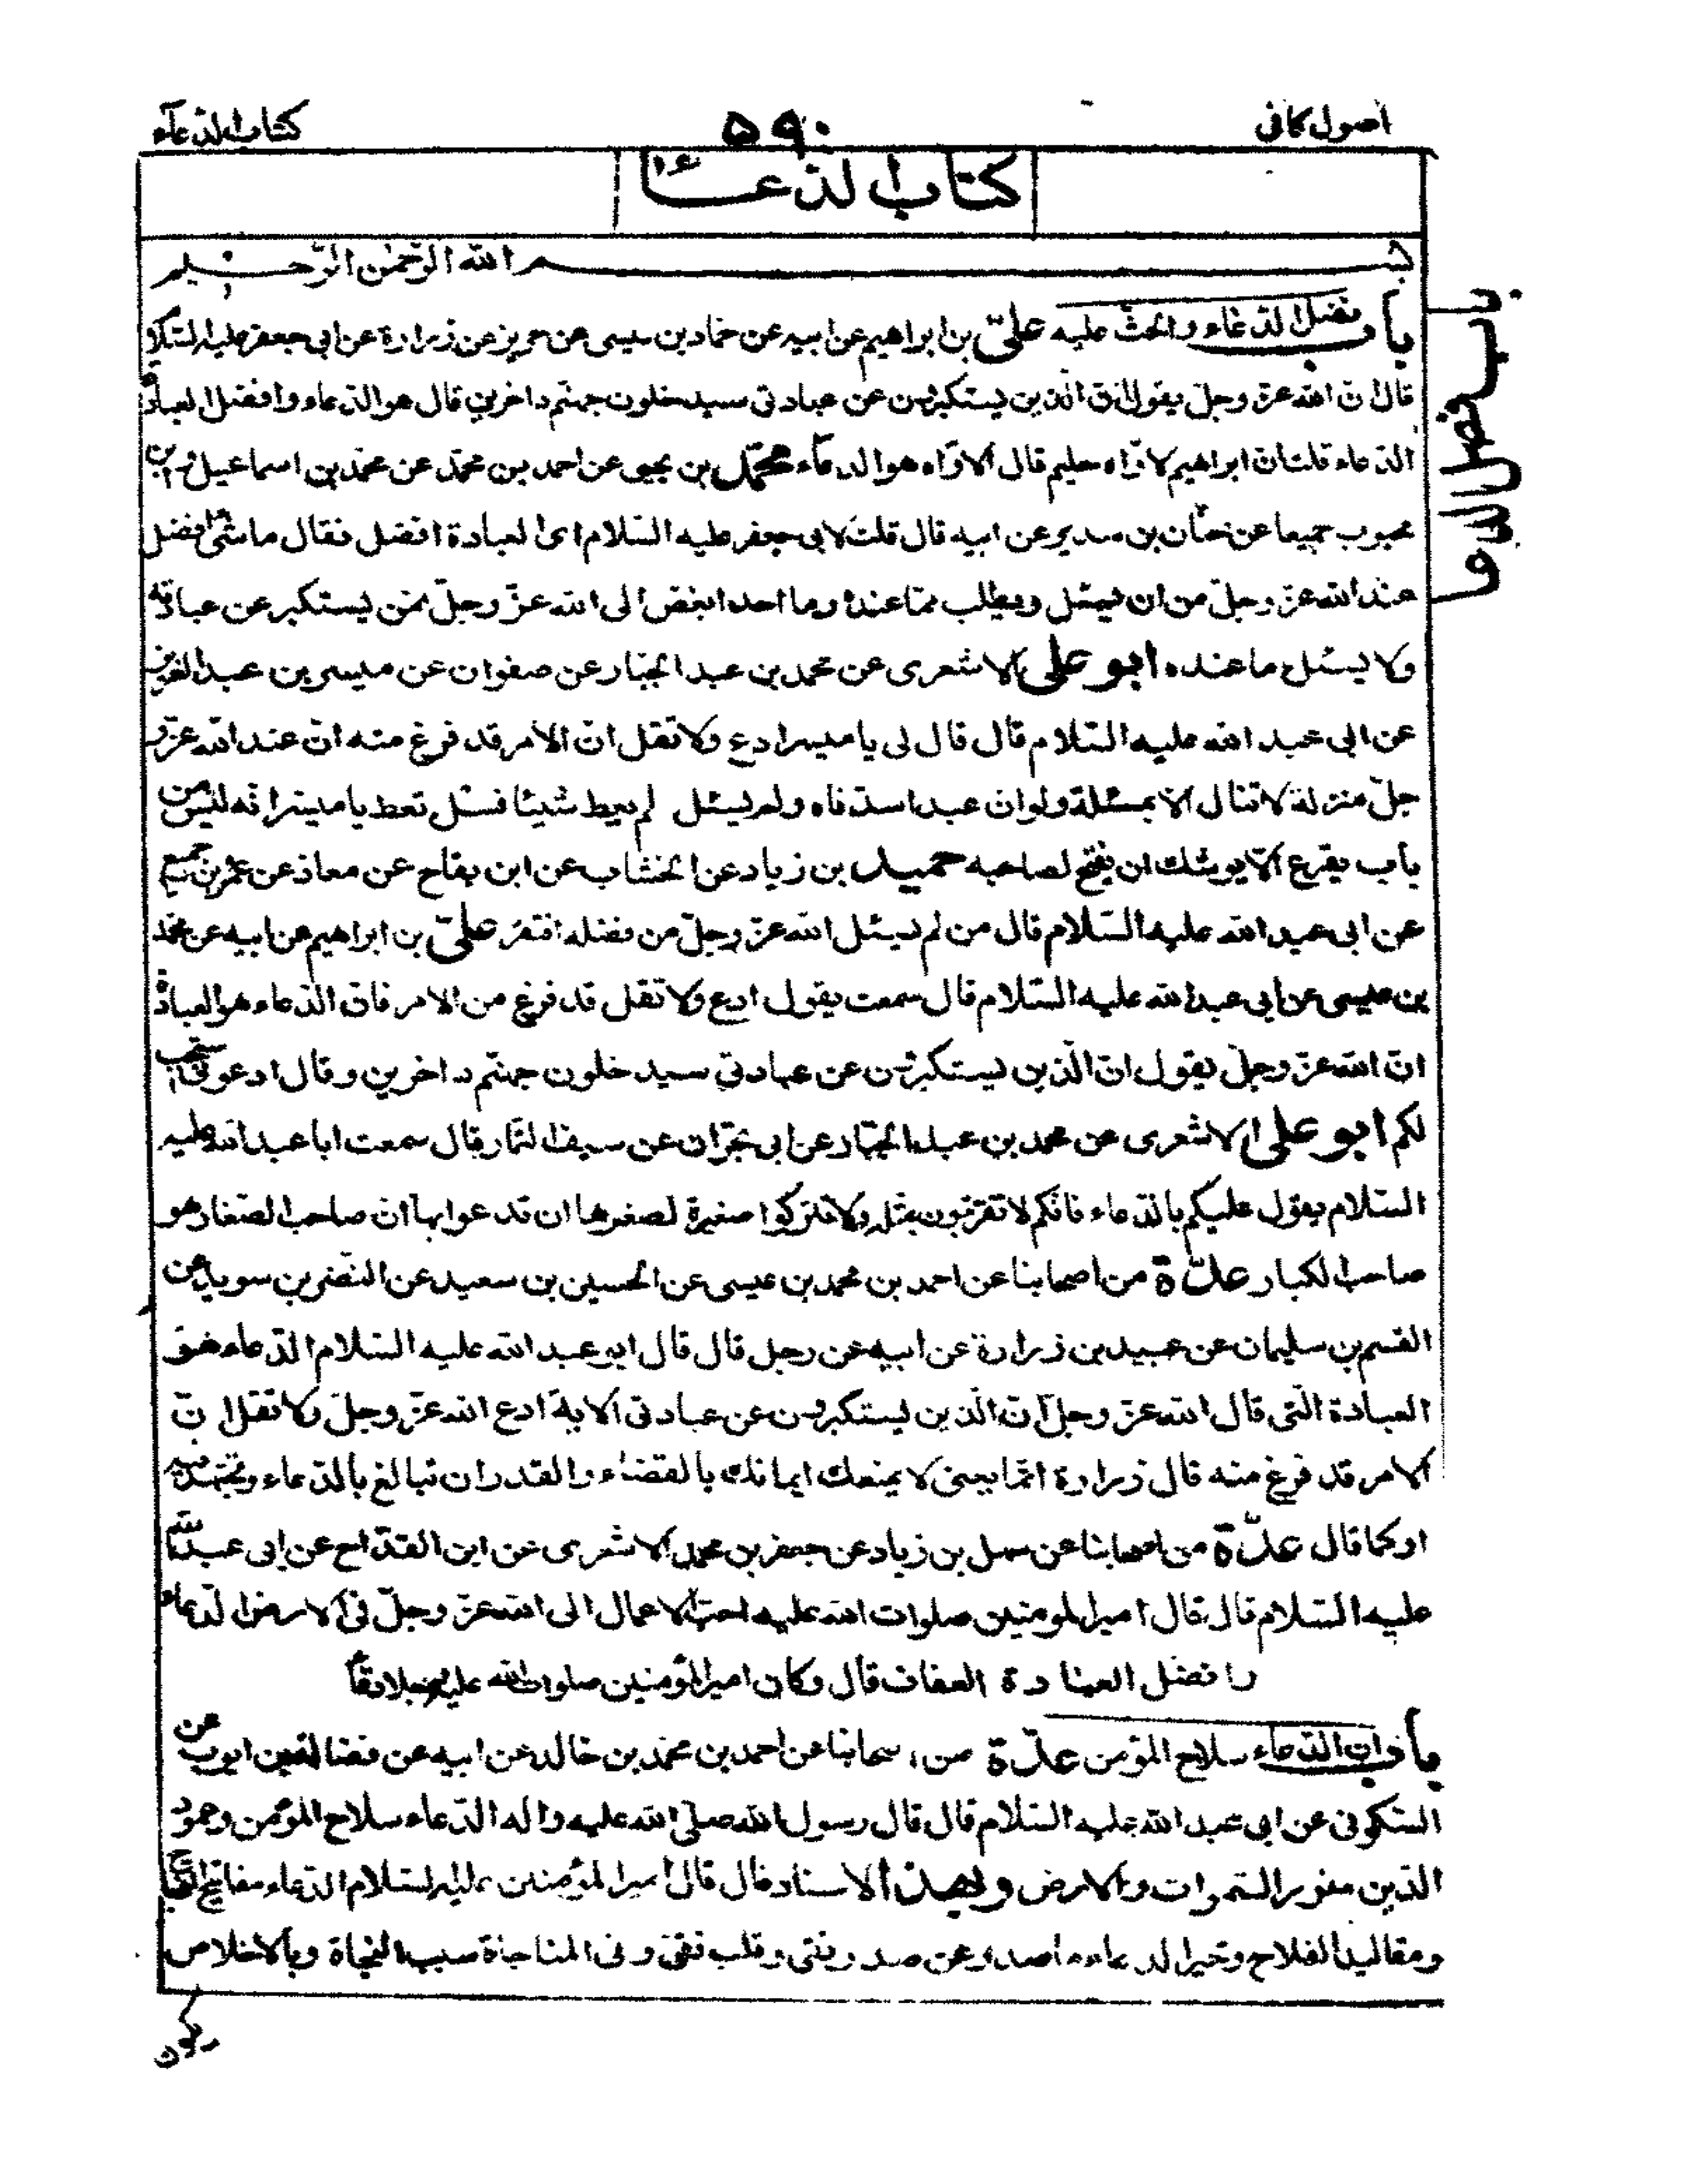 اصول كافى
۵۹۰
كتاب الدّعآء
كتاب الدّعاء
بسم الله الرّحمن الرّحيم
باب فضل الدّعاء والحثّ عليه علىّ بن ابراهيم عن ابيه عن حمّاد بن عيسى عن حريز عن زرارة عن ابى جعفر عليه السّلام
قال انّ الله عزّ وجلّ يقول انّ الّذين يستكبرون عن عبادتى سيدخلون جهنّم داخرين قال هو الدّعاء وافضل العبادة
الدّعاء قلت انّ ابراهيم لاوّاه حليم قال الاوّاه هو الدعّاء محمّد بن يحيى عن احمد بن محمّد عن محمّد بن اسماعيل وابن
محبوب جميعا عن حنّان بن سدير عن ابيه قال قلت لابى جعفر عليه السّلام اىّ العبادة افضل فقال ما شئ افضل
عند الله عزّ وجلّ من ان يسئل ويطلب ممّا عنده وما احد ابغض الى الله عزّ وجلّ ممّن يستكبر عن عبادته
ولا يسئل ما عنده ابو على الاشعرى عن محمد بن عبد الجبّار عن صفوان عن ميسر بن عبد العزيز
عن ابى عبد الله عليه السّلام قال قال لى يا ميسر ادع ولا تقل انّ الامر قد فرغ منه انّ عند الله عزّ و
جلّ منزلة لا تنال الّا بمسئلة ولو انّ عبدا سدّ فاه ولم يسئل لم يعط شيئا فسئل تعط يا ميسر انّه ليس من
باب يقرع الّا يوشك ان يفتح لصاحبه حميد بن زياد عن الخشّاب عن ابن بقاح عن معاذ عن عمرو بن جميع
عن ابى عبد الله عليه السّلام قال من لم يسئل الله عزّ وجلّ من فضله افتقر علىّ بن ابراهيم عن ابيه عن حمّاد
بن عيسى عن ابى عبد الله عليه السّلام قال سمعت يقول ادع ولا تقل قد فرغ من الامر فانّ الدّعاء هو العبادة
انّ الله عزّ وجلّ يقول انّ الّذين يستكبرون عن عبادتى سيدخلون جهنّم داخرين وقال ادعونى استجب
لكم ابو على الاشعرى عن محمد بن عبد الجبّار عن ابى نجران عن سيف التمّار قال سمعت ابا عبد الله عليه
السّلام يقول عليكم بالدّعاء فانّكم لا تقرّبون بمثله ولا تتركوا صغيرة لصغرها ان تدعوا بها انّ صاحب الصّغار هو
صاحب الكبار عدّة من اصحابنا عن احمد بن محمد بن عيسى عن الحسين بن سعيد عن النضر بن سويد عن
القسم بن سليمان عن عبيد بن زرارة عن ابيه عن رجل قال قال ابو عبد الله عليه السّلام الدّعاء هو
العبادة الّتى قال الله عزّ وجلّ انّ الّذين يستكبرون عن عبادتى الاية ادع الله عزّ وجلّ ولا تقل انّ
الامر قد فرغ منه قال زرارة انّما يعنى لا يمنعك ايمانك بالقضاء والقدر ان تبالغ بالدّعاء وتجتهد فيه
او كما قال عدّة من اصحابنا عن سهل بن زياد عن جعفر بن محمد الاشعرى عن ابن القدّاح عن ابى عبد الله
عليه السّلام قال قال امير المومنين صلوات الله عليه احبّ الاعمال الى الله عزّ وجلّ فى الارض الدّعاء
وافضل العبادة العفاف قال وكان امير المؤمنين صلوات الله عليه رجلا دعّاء
باب انّ الدّعاء سلاح المؤمن عدّة من اصحابنا عن احمد بن محمّد بن خالد عن ابيه عن فضالة بن ايوب عن
السّكونى عن ابى عبد الله عليه السّلام قال قال رسول الله صلّى الله عليه واله الدّعاء سلاح المؤمن وعمود
الدّين ونور السّموات والارض وبهذا الاسناد قال قال امير المؤمنين عليه السّلام الدّعاء مفاتيح النّجاح
ومقاليد الفلاح وخير الدعاء ما صدر عن صدر نقى وقلب تقى وفى المناجاة سبب النّجاة وبالاخلاص